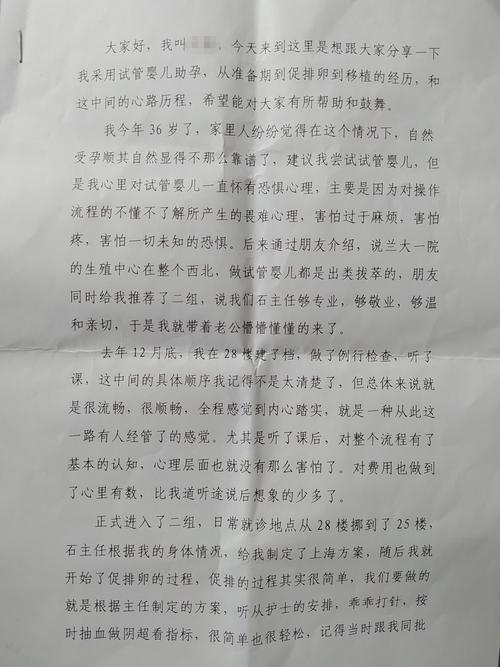 大家好，我叫 ，今天来到这里是想跟大家分享一下
我采用试管婴儿助孕，从准备期到促排卵到移植的经历，和
这中间的心路历程，希望能对大家有所帮助和鼓舞。
我今年 36 岁了，家里人纷纷觉得在这个情况下，自然
受孕顺其自然显得不那么靠谱了，建议我尝试试管婴儿，但
是我心里对试管婴儿一直怀有恐惧心理，主要是因为对操作
流程的不懂不了解所产生的畏难心理，害怕过于麻烦，害怕
疼，害怕一切未知的恐惧。后来通过朋友介绍，说兰大一院
的生殖中心在整个西北，做试管婴儿都是出类拔萃的，朋友
同时给我推荐了二组，说我们石主任够专业，够敬业，够温
和亲切，于是我就带着老公懵懵懂懂的来了。
去年 12 月底，我在 28 楼建了档，做了例行检查，听了
课，这中间的具体顺序我记得不是太清楚了，但总体来说就
是很流畅，很顺畅，全程感觉到内心踏实，就是一种从此这
一路有人经管了的感觉。尤其是听了课后，对整个流程有了
基本的认知，心理层面也就没有那么害怕了。对费用也做到
了心里有数，比我道听途说后想象的少多了。
正式进入了二组，日常就诊地点从 28 楼挪到了 25 楼，
石主任根据我的身体情况，给我制定了上海方案，随后我就
开始了促排卵的过程，促排的过程其实很简单，我们要做的
就是根据主任制定的方案，听从护士的安排，乖乖打针，按
时抽血做阴超看指标，很简单也很轻松，记得当时跟我同批